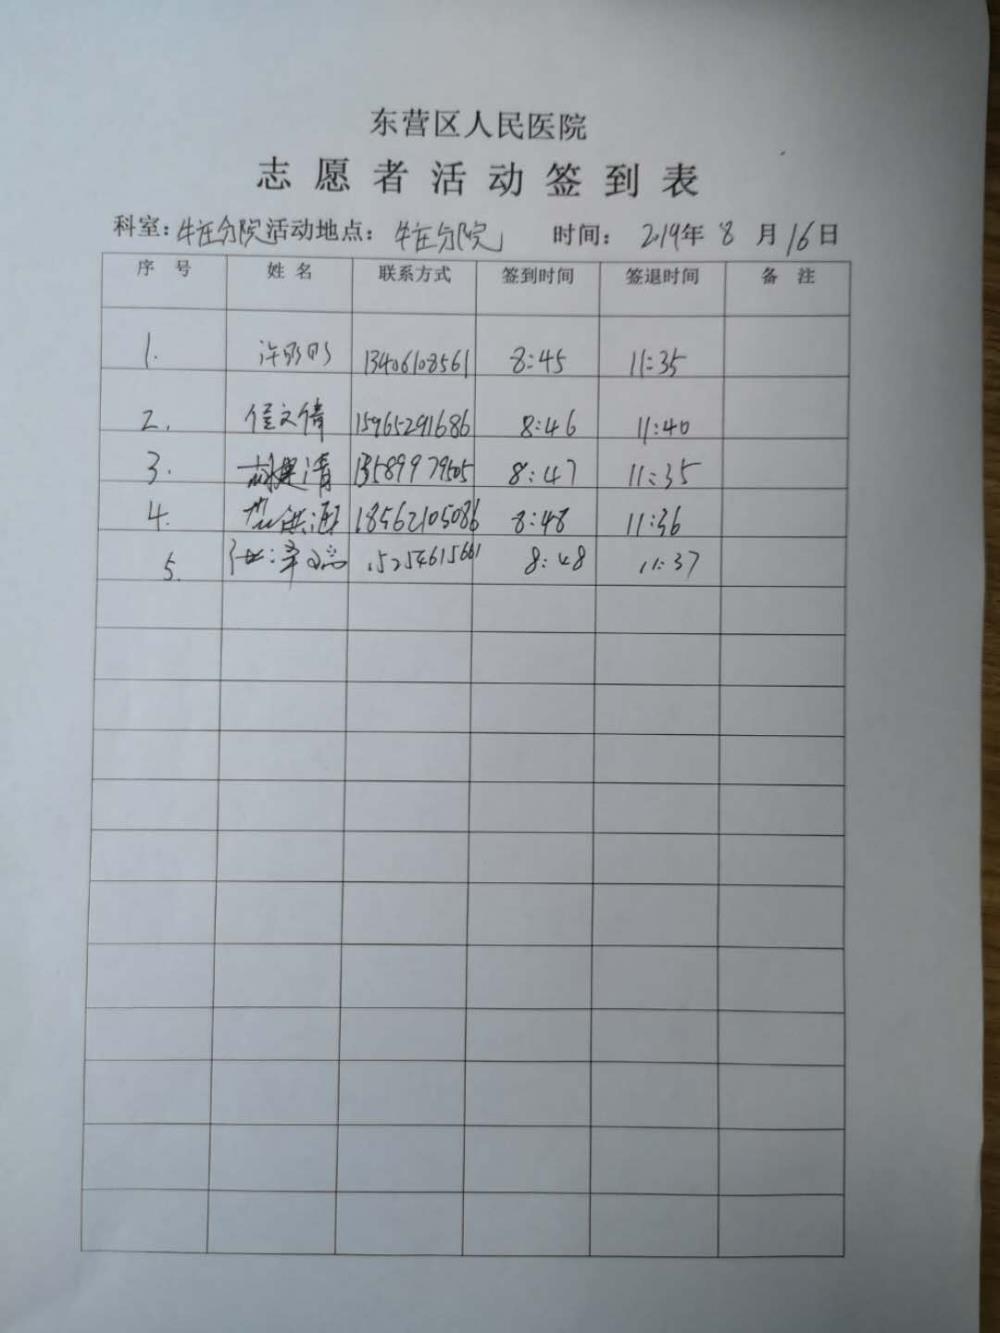 东营区人民医院
志愿者活动签到表
科室:牛庄分院 活动地点:牛庄分院 时间:2019年8月16日
序号 姓名 联系方式 签到时间 签退时间 备注
1. 许明明 13406108561 8:45 11:35
2. 侯文倩 15965291686 8:46 11:40
3. 清 13589979505 8:47 11:35
4. 18562105086 8:48 11:36
5. 15254615661 8:48 11:37